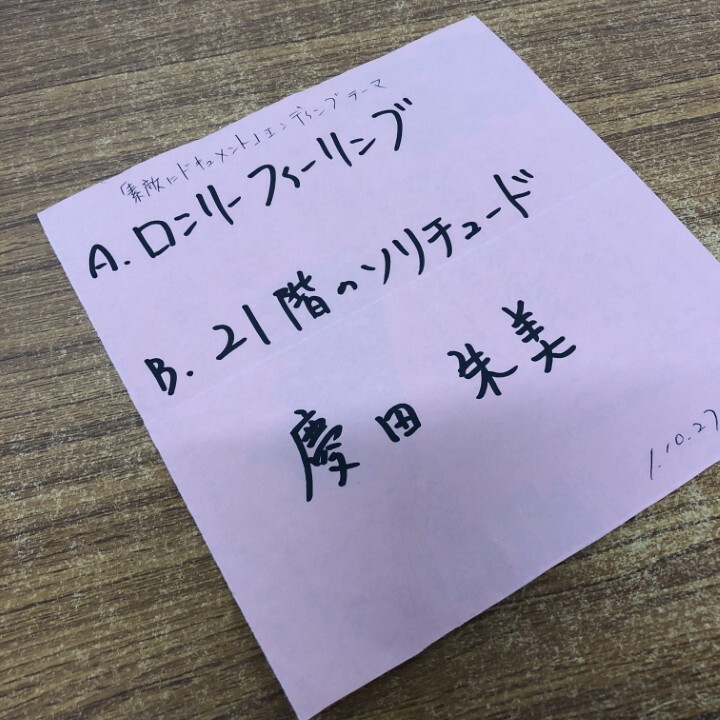 「素敵にドキュメント」エンディングテーマ
A.ロンリーフィーリング
B.21階のソリチュード
慶田 朱美
1.10.27